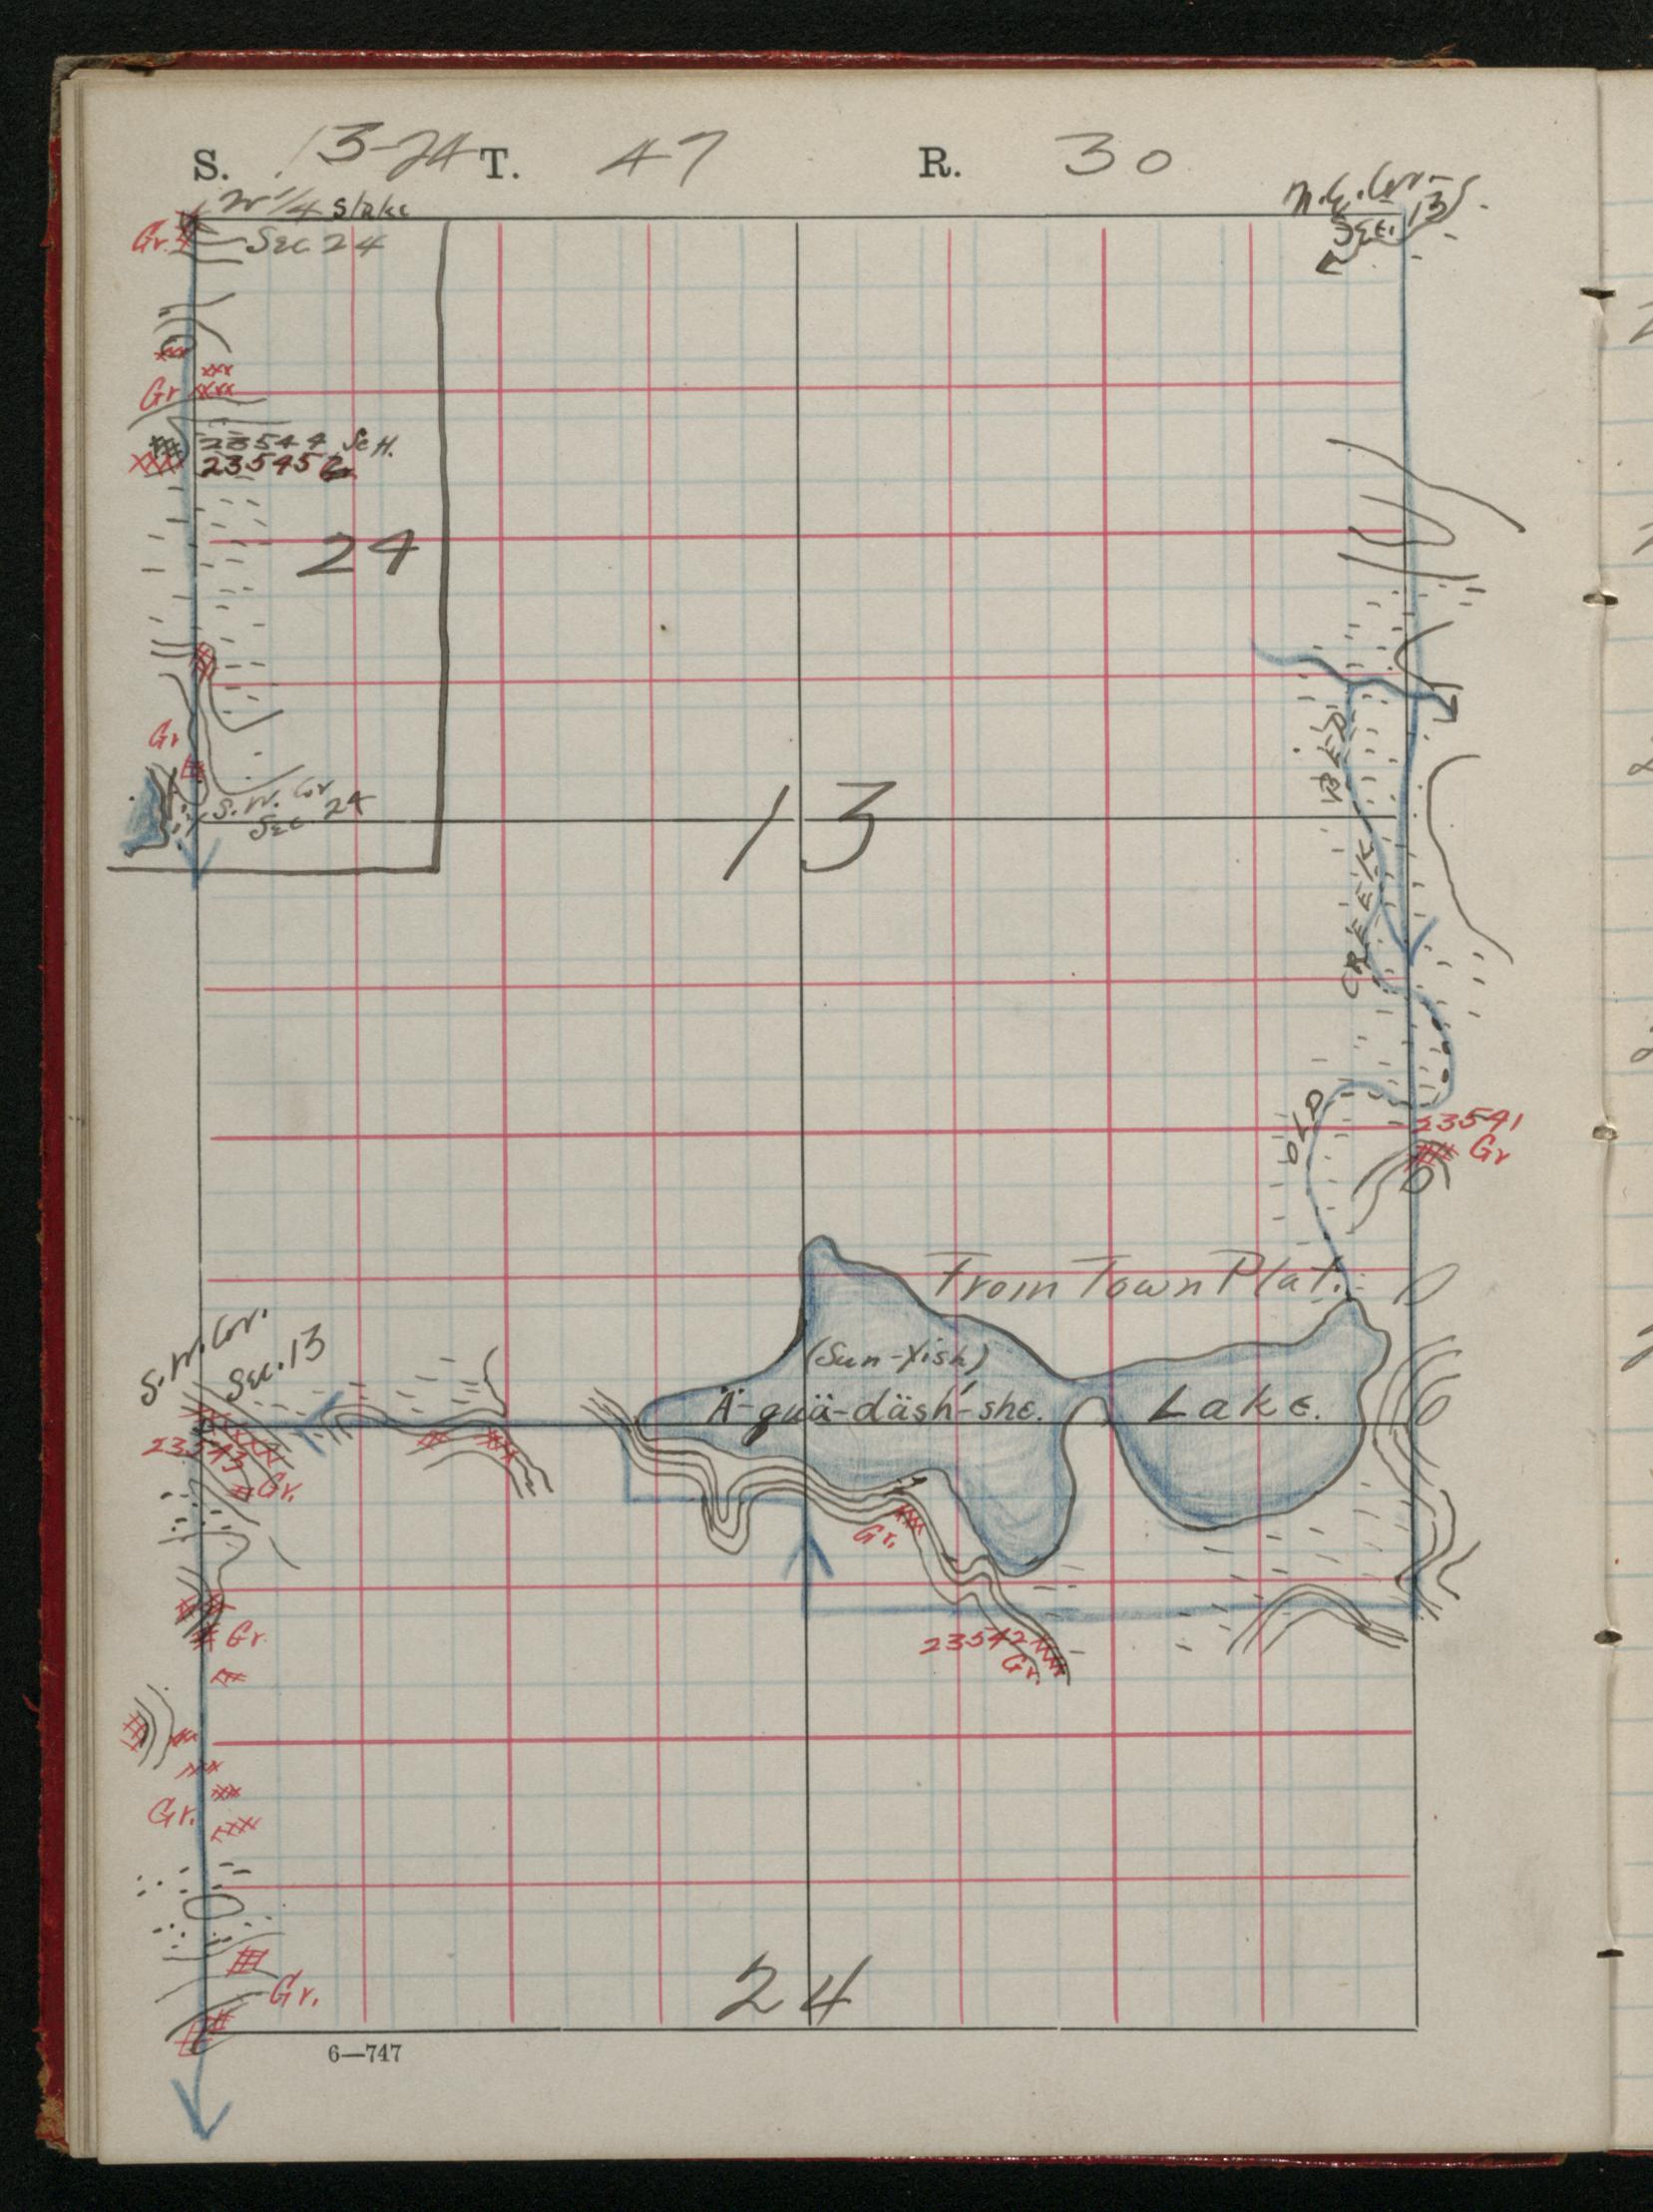 S. 13-24 T. 47 R. 30
W 1/4 stake
Sec. 24
N.E. Cor.
Sec. 13
Gr.
Gr
23544 Sch.
23545 Gr.
24
Gr
S.W. Cor
Sec. 24
13
OLD CREEK BED
23541
Gr
From Town Plat.
S.W. Cor.
Sec. 13
(Sun-fish)
Ä-guä-däsh'-she. Lake.
23543
Gr.
Gr.
23542
Gr.
Gr.
Gr.
Gr.
24
6—747